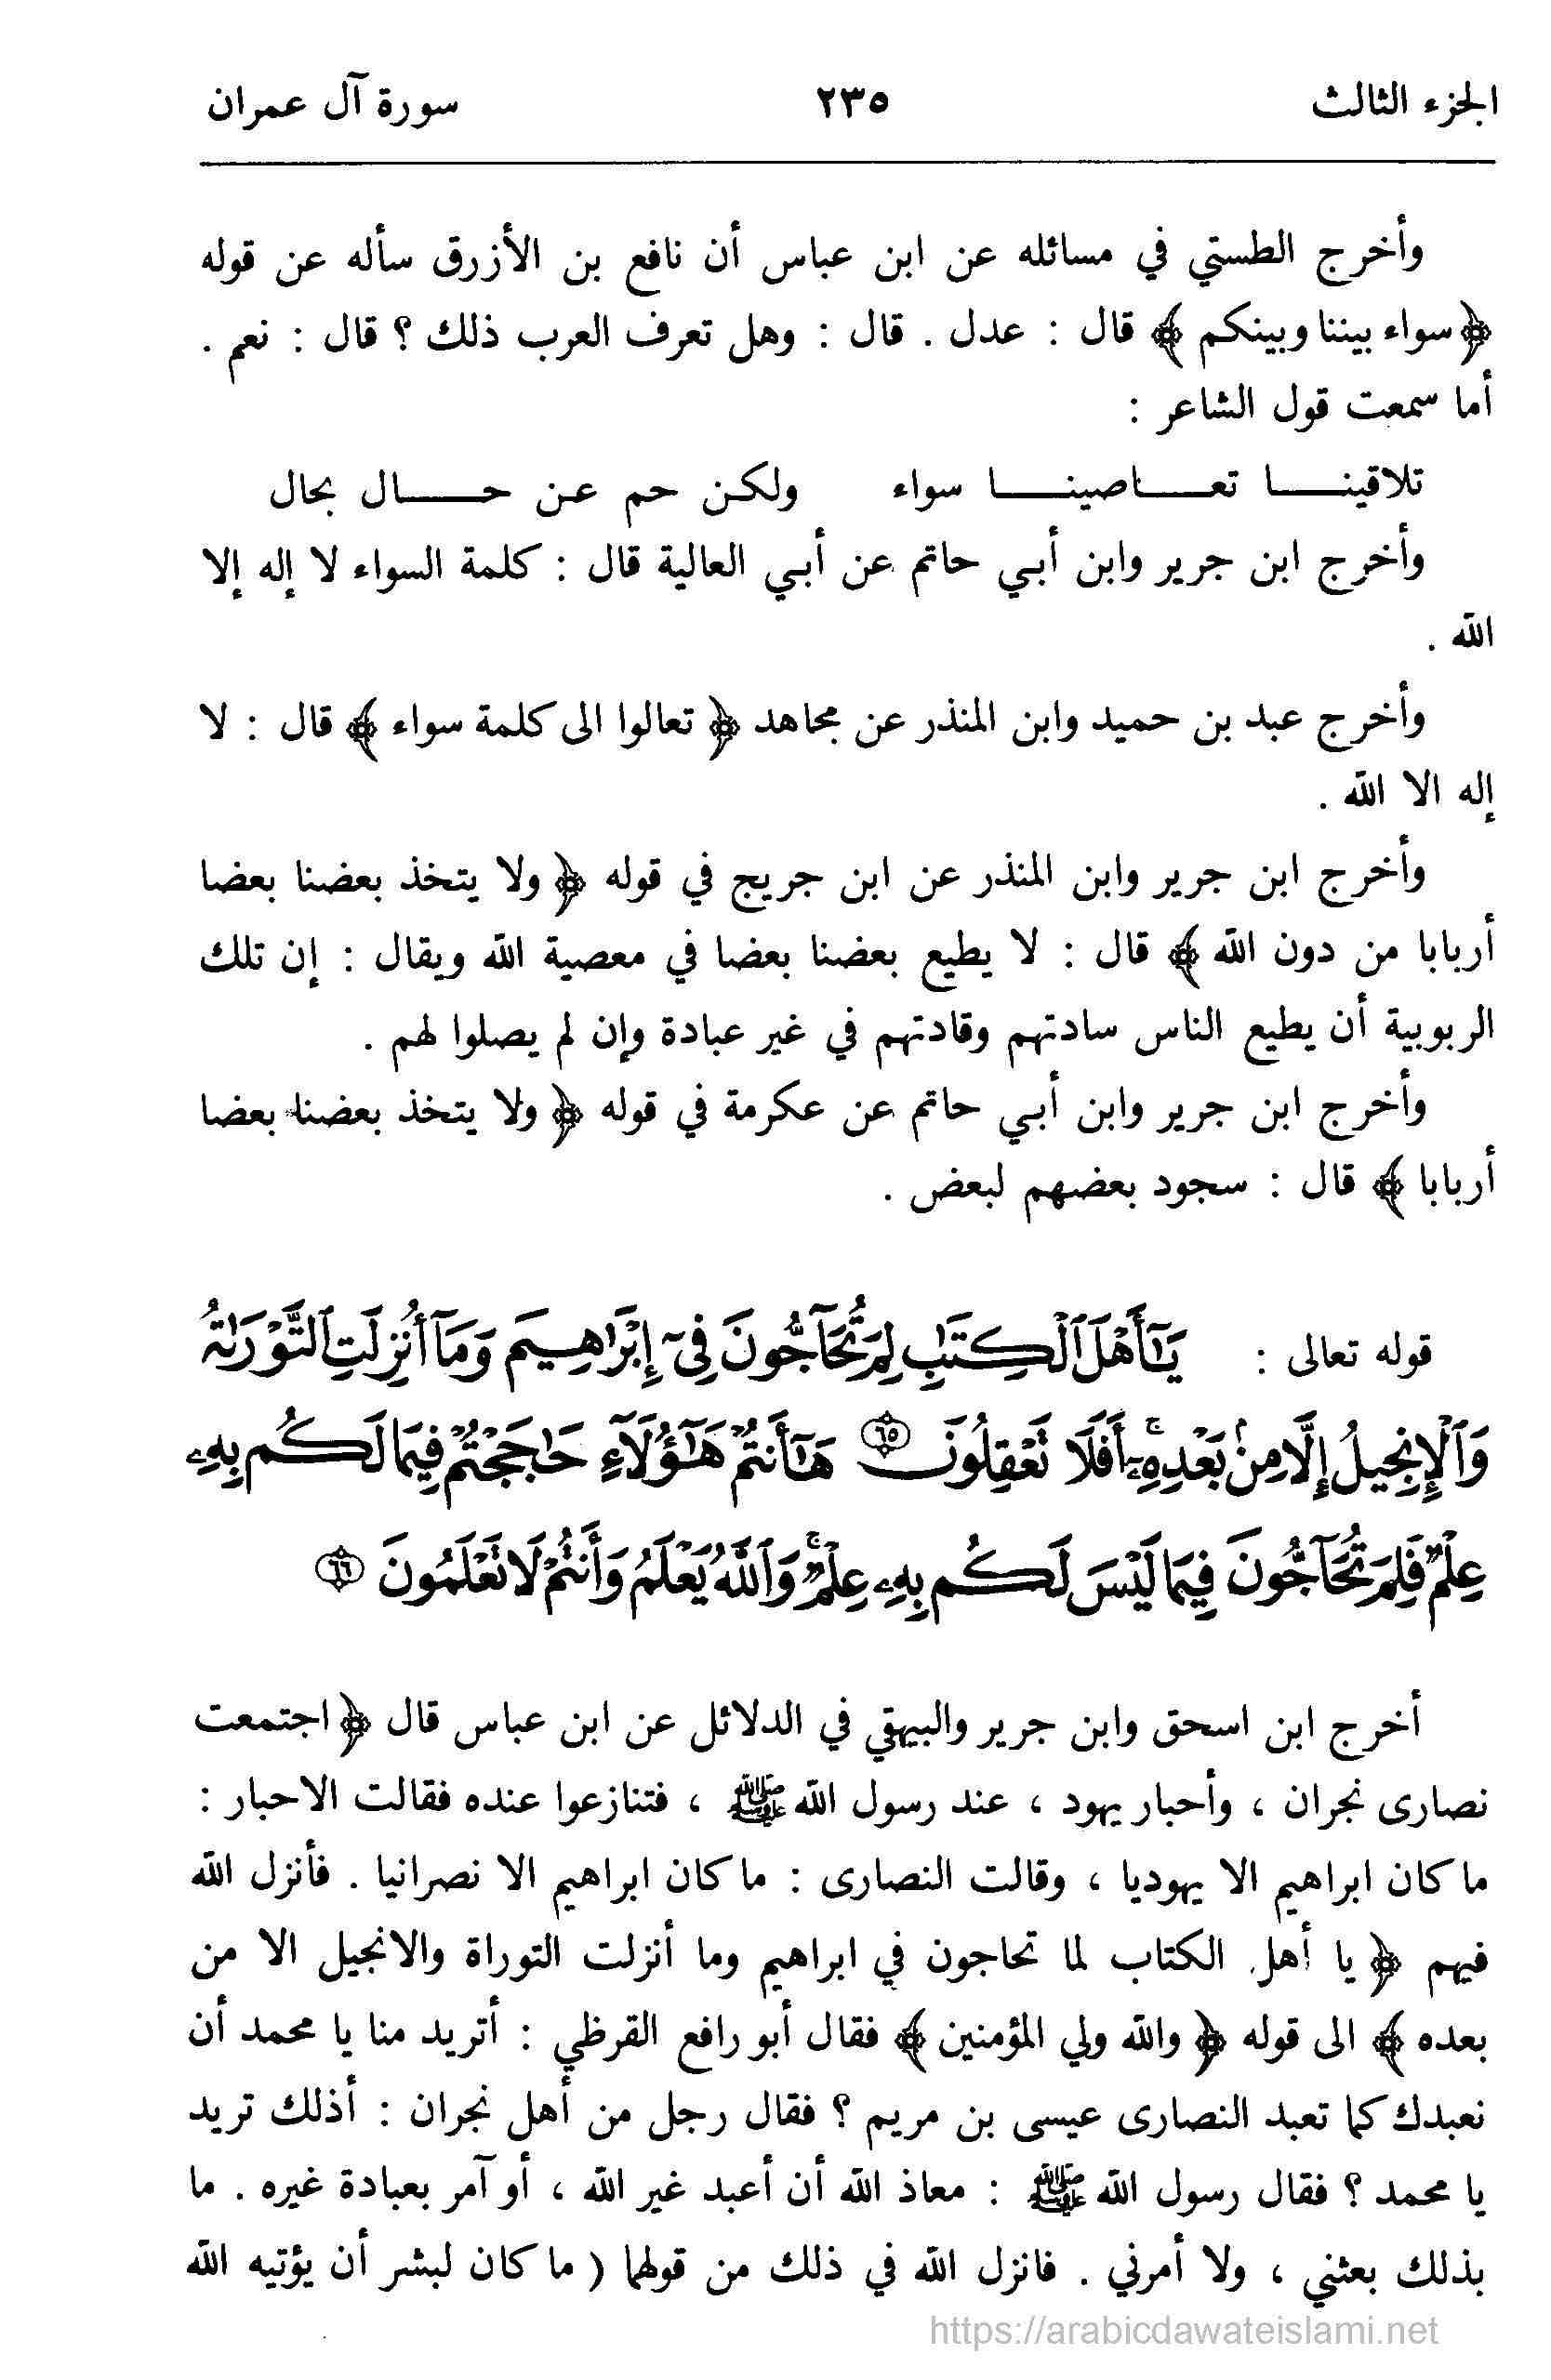 الجزء الثالث ٢٣٥ سورة آل عمران
وأخرج الطستي في مسائله عن ابن عباس أن نافع بن الأزرق سأله عن قوله
﴿سواء بيننا وبينكم ﴾ قال : عدل . قال : وهل تعرف العرب ذلك ؟ قال : نعم .
أما سمعت قول الشاعر :
تلاقينـــا تعـــاصينـــا سواء ولكـن حم عـن حـــال بحال
وأخرج ابن جرير وابن أبـي حاتم عن أبـي العالية قال : كلمة السواء لا إله إلا
الله .
وأخرج عبد بن حميد وابن المنذر عن مجاهد ﴿ تعالوا الى كلمة سواء ﴾ قال : لا
إله الا الله .
وأخرج ابن جرير وابن المنذر عن ابن جريج في قوله ﴿ ولا يتخذ بعضنا بعضا
أربابا من دون الله ﴾ قال : لا يطيع بعضنا بعضا في معصية الله ويقال : إن تلك
الربوبية أن يطيع الناس سادتهم وقادتهم في غير عبادة وإن لم يصلوا لهم .
وأخرج ابن جرير وابن أبـي حاتم عن عكرمة في قوله ﴿ ولا يتخذ بعضنا بعضا
أربابا ﴾ قال : سجود بعضهم لبعض .
قوله تعالى : يَـٰٓأَهْلَ ٱلْكِتَـٰبِ لِمَ تُحَآجُّونَ فِىٓ إِبْرَٰهِيمَ وَمَآ أُنزِلَتِ ٱلتَّوْرَىٰةُ
وَٱلْإِنجِيلُ إِلَّا مِنۢ بَعْدِهِۦٓ ۚ أَفَلَا تَعْقِلُونَ ٦٥ هَـٰٓأَنتُمْ هَـٰٓؤُلَآءِ حَـٰجَجْتُمْ فِيمَا لَكُم بِهِۦ
عِلْمٌ فَلِمَ تُحَآجُّونَ فِيمَا لَيْسَ لَكُم بِهِۦ عِلْمٌ ۚ وَٱللَّهُ يَعْلَمُ وَأَنتُمْ لَا تَعْلَمُونَ ٦٦
أخرج ابن اسحق وابن جرير والبيهقي في الدلائل عن ابن عباس قال ﴿اجتمعت
نصارى نجران ، وأحبار يهود ، عند رسول الله ﷺ ، فتنازعوا عنده فقالت الاحبار :
ما كان ابراهيم الا يهوديا ، وقالت النصارى : ما كان ابراهيم الا نصرانيا . فأنزل الله
فيهم ﴿ يا أهل الكتاب لما تحاجون في ابراهيم وما أنزلت التوراة والانجيل الا من
بعده ﴾ الى قوله ﴿ والله ولي المؤمنين ﴾ فقال أبو رافع القرظي : أتريد منا يا محمد أن
نعبدك كما تعبد النصارى عيسى بن مريم ؟ فقال رجل من أهل نجران : أذلك تريد
يا محمد ؟ فقال رسول الله ﷺ : معاذ الله أن أعبد غير الله ، أو آمر بعبادة غيره . ما
بذلك بعثني ، ولا أمرني . فانزل الله في ذلك من قولهما ( ما كان لبشر أن يؤتيه الله
https://arabicdawateislami.net